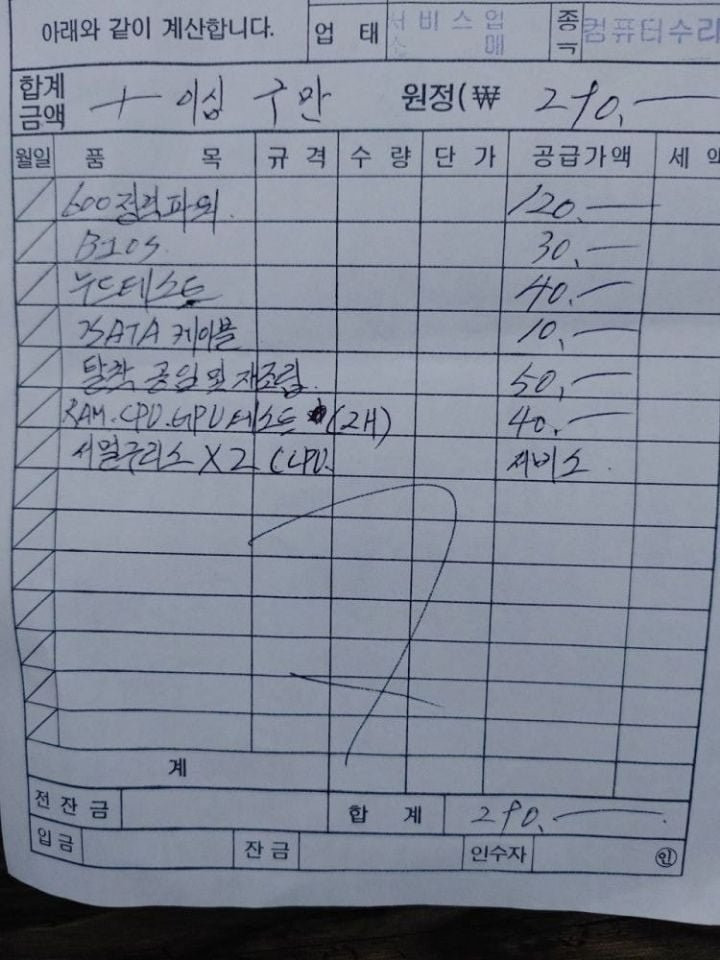 아래와 같이 계산합니다. 업 태 서비스업 종 컴퓨터수리
소 매
합계 금액 一 이십 구만 원정(₩ 290,—
월일 품 목 규 격 수 량 단 가 공급가액 세 액
600정격파워. 120.—
BIOS. 30,—
누드테스트 40.—
SATA 케이블 10,—
탈착 공임 및 재조립. 50,—
RAM.CPU.GPU테스트 (2H) 40.—
써멀구리스 X2 (CPU. 서비스.
계
전잔금 합 계 290.—
입금 잔금 인수자 ㊞